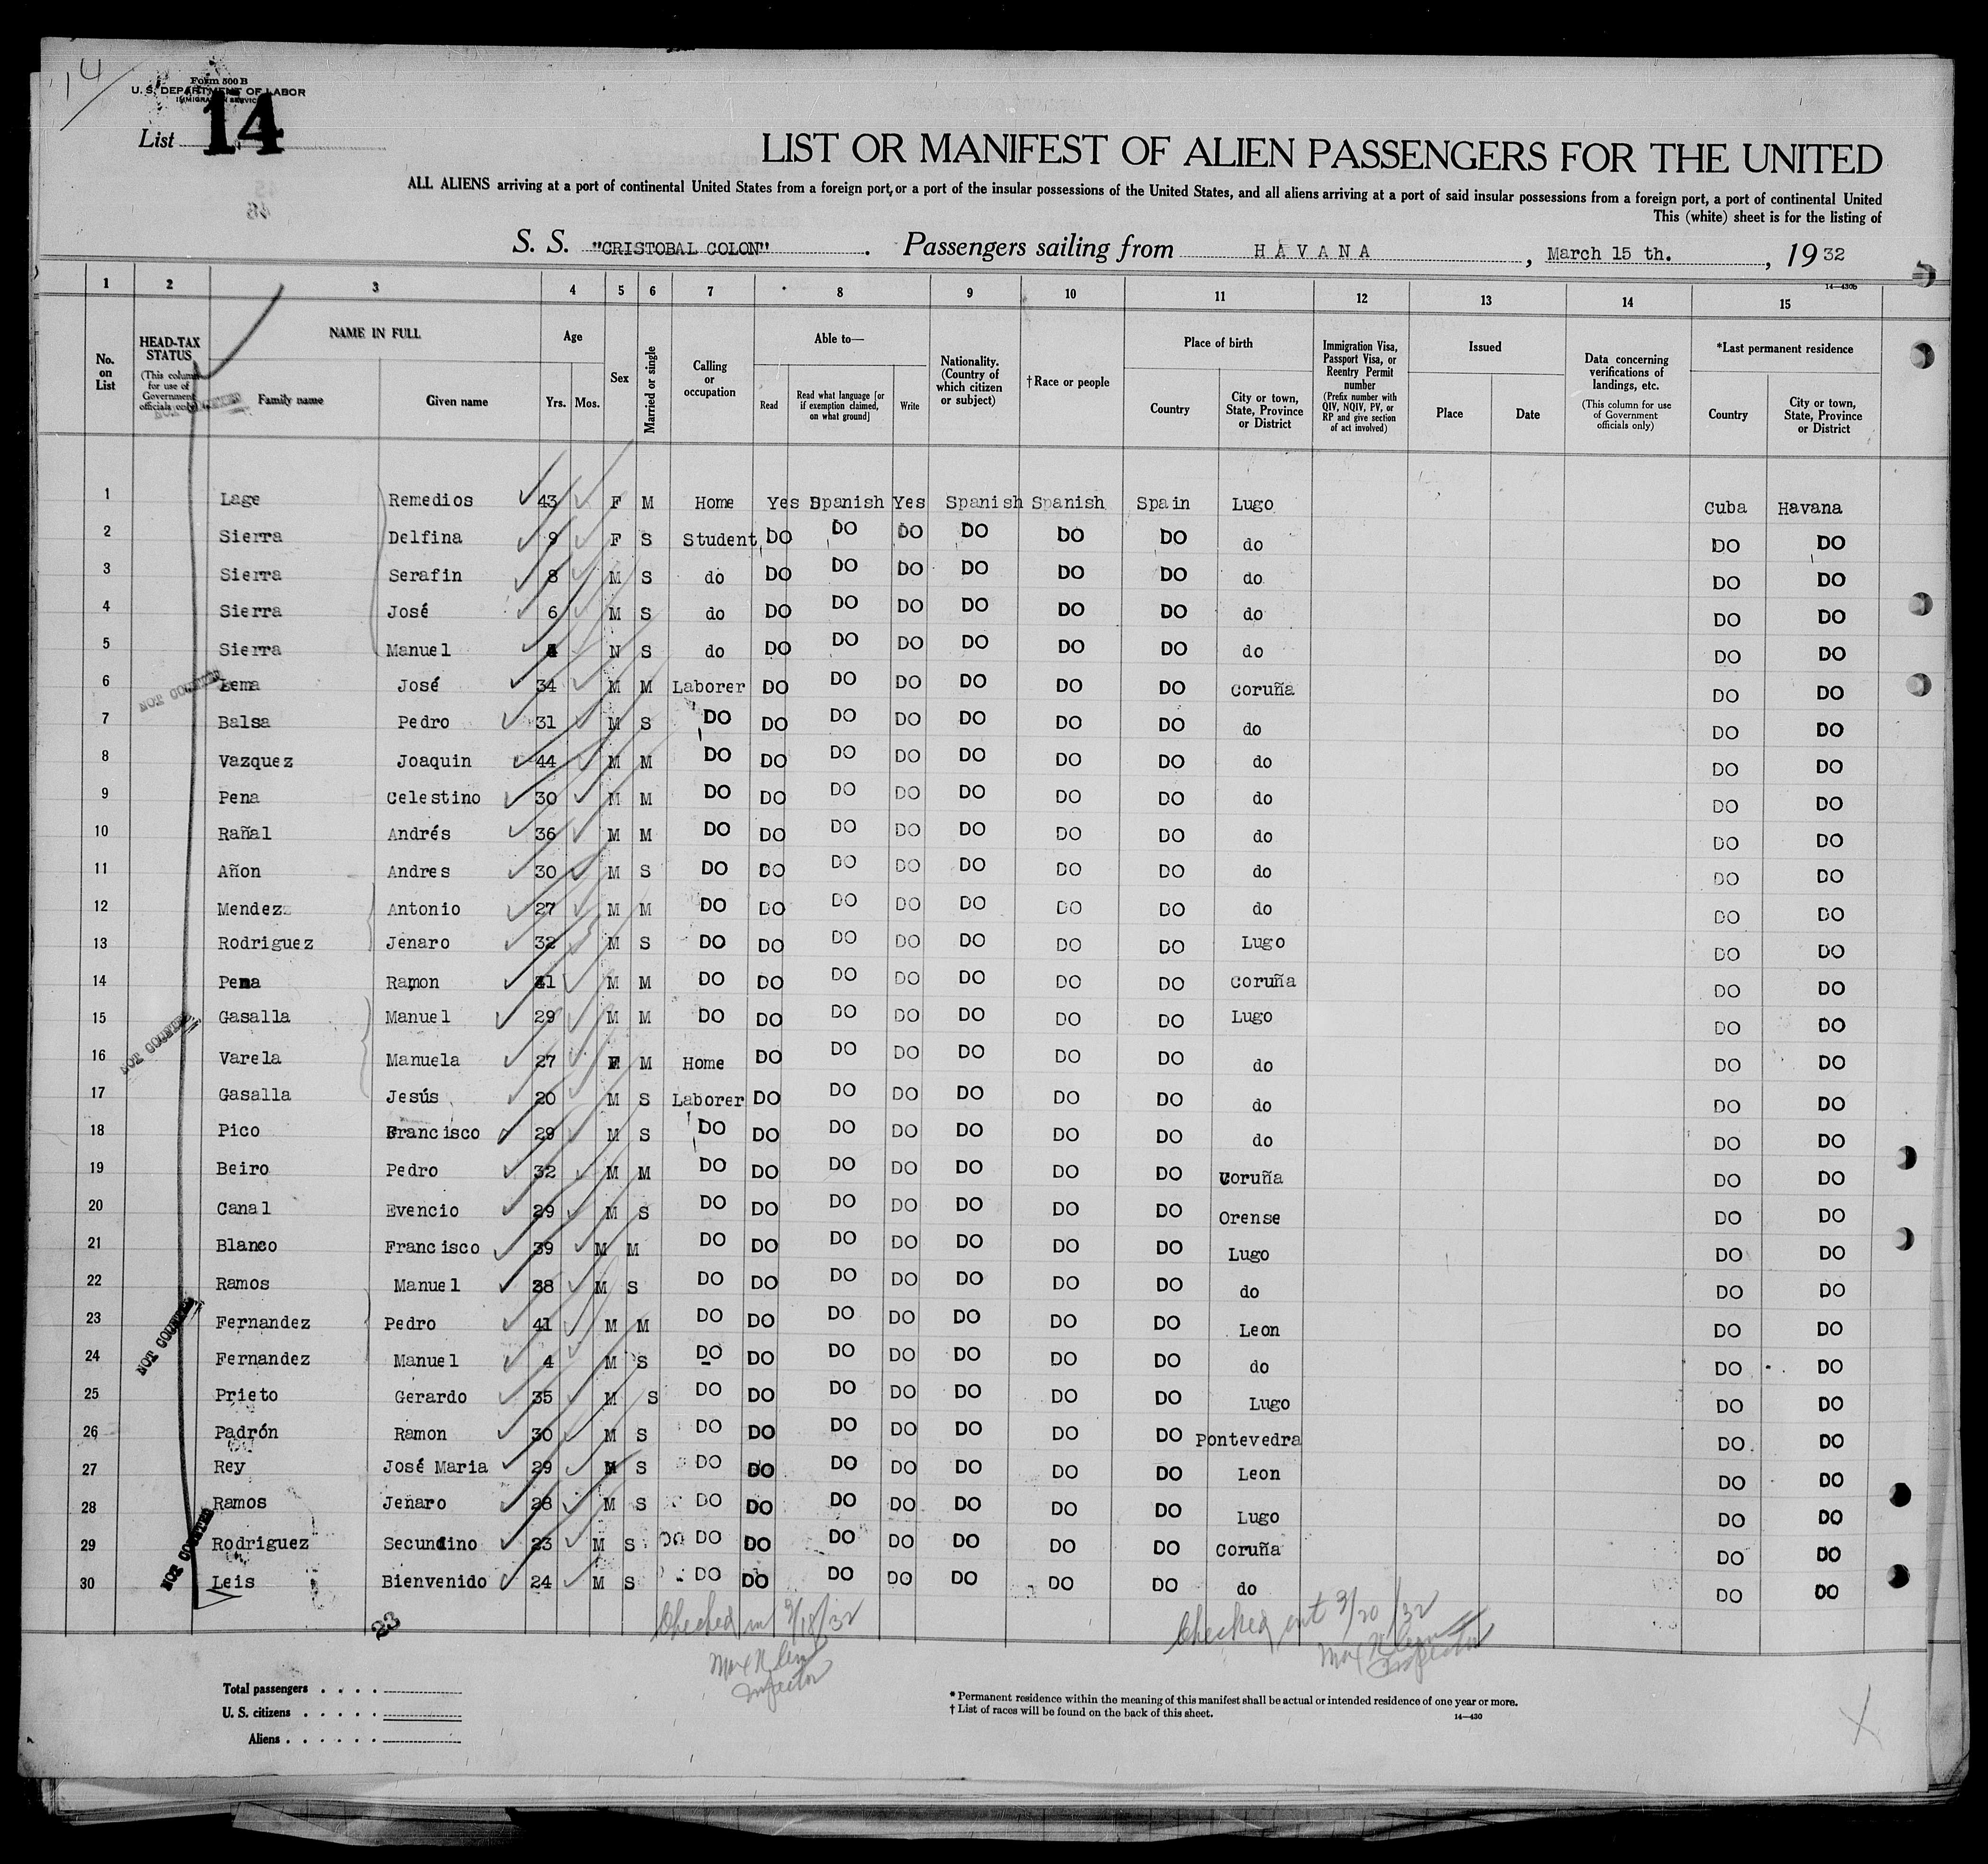 14
Form 500 B
U. S. DEPARTMENT OF LABOR
IMMIGRATION SERVICE
List 14
LIST OR MANIFEST OF ALIEN PASSENGERS FOR THE UNITED
ALL ALIENS arriving at a port of continental United States from a foreign port, or a port of the insular possessions of the United States, and all aliens arriving at a port of said insular possessions from a foreign port, a port of continental United
This (white) sheet is for the listing of
S. S. "CRISTOBAL COLON". Passengers sailing from HAVANA, March 15 th., 1932
14—430b
1 2 3 4 5 6 7 8 9 10 11 12 13 14 15
No. on List
HEAD-TAX STATUS (This column for use of Government officials only)
NAME IN FULL Family name Given name
Age Yrs. Mos.
Sex
Married or single
Calling or occupation
Able to— Read Read what language [or if exemption claimed, on what ground] Write
Nationality. (Country of which citizen or subject)
†Race or people
Place of birth Country City or town, State, Province or District
Immigration Visa, Passport Visa, or Reentry Permit number (Prefix number with QIV, NQIV, PV, or RP and give section of act involved)
Issued Place Date
Data concerning verifications of landings, etc. (This column for use of Government officials only)
*Last permanent residence Country City or town, State, Province or District
1 Lage Remedios 43 F M Home Yes Spanish Yes Spanish Spanish Spain Lugo Cuba Havana
2 Sierra Delfina 9 F S Student DO DO DO DO DO DO do DO DO
3 Sierra Serafin 8 M S do DO DO DO DO DO DO do DO DO
4 Sierra José 6 M S do DO DO DO DO DO DO do DO DO
5 Sierra Manuel N S do DO DO DO DO DO DO do DO DO
6 NOT COUNTED Lema José 34 M M Laborer DO DO DO DO DO DO Coruña DO DO
7 Balsa Pedro 31 M S DO DO DO DO DO DO DO do DO DO
8 Vazquez Joaquin 44 M M DO DO DO DO DO DO DO do DO DO
9 Pena Celestino 30 M M DO DO DO DO DO DO DO do DO DO
10 Rañal Andrés 36 M M DO DO DO DO DO DO DO do DO DO
11 Añon Andres 30 M S DO DO DO DO DO DO DO do DO DO
12 Mendez Antonio 27 M M DO DO DO DO DO DO DO do DO DO
13 Rodriguez Jenaro 32 M S DO DO DO DO DO DO DO Lugo DO DO
14 Pena Ramon 41 M M DO DO DO DO DO DO DO Coruña DO DO
15 Gasalla Manuel 29 M M DO DO DO DO DO DO DO Lugo DO DO
16 NOT COUNTED Varela Manuela 27 F M Home DO DO DO DO DO DO do DO DO
17 Gasalla Jesús 20 M S Laborer DO DO DO DO DO DO do DO DO
18 Pico Francisco 29 M S DO DO DO DO DO DO DO do DO DO
19 Beiro Pedro 32 M M DO DO DO DO DO DO DO Coruña DO DO
20 Canal Evencio 29 M S DO DO DO DO DO DO DO Orense DO DO
21 Blanco Francisco 39 M M DO DO DO DO DO DO DO Lugo DO DO
22 Ramos Manuel 38 M S DO DO DO DO DO DO DO do DO DO
23 Fernandez Pedro 41 M M DO DO DO DO DO DO DO Leon DO DO
24 NOT COUNTED Fernandez Manuel 4 M S DO DO DO DO DO DO DO do DO DO
25 Prieto Gerardo 35 M S DO DO DO DO DO DO DO Lugo DO DO
26 Padrón Ramon 30 M S DO DO DO DO DO DO DO Pontevedra DO DO
27 Rey José Maria 29 M S DO DO DO DO DO DO DO Leon DO DO
28 Ramos Jenaro 28 M S DO DO DO DO DO DO DO Lugo DO DO
29 NOT COUNTED Rodriguez Secundino 23 M S DO DO DO DO DO DO DO DO Coruña DO DO
30 Leis Bienvenido 24 M S DO DO DO DO DO DO DO do DO DO
23
Checked in 3/18/32
Inspector
Checked out 3/20/32
Inspector
Total passengers
U. S. citizens
Aliens
* Permanent residence within the meaning of this manifest shall be actual or intended residence of one year or more.
† List of races will be found on the back of this sheet.
14—430
X